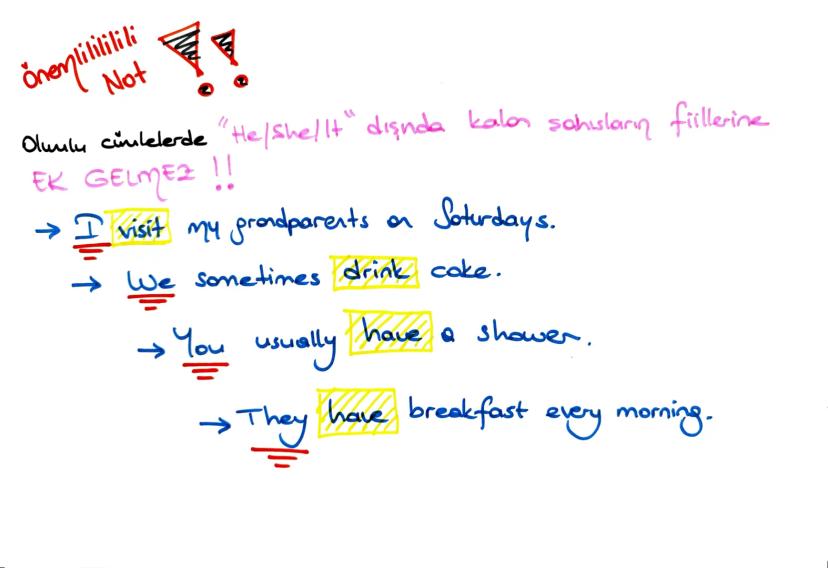 Önemlilililili
Not !!
Olumlu cümlelerde "He/She/It" dışında kalan şahısların fiillerine
EK GELMEZ !!
→ I visit my grandparents on Saturdays.
→ We sometimes drink coke.
→ You usually have a shower.
→ They have breakfast every morning.